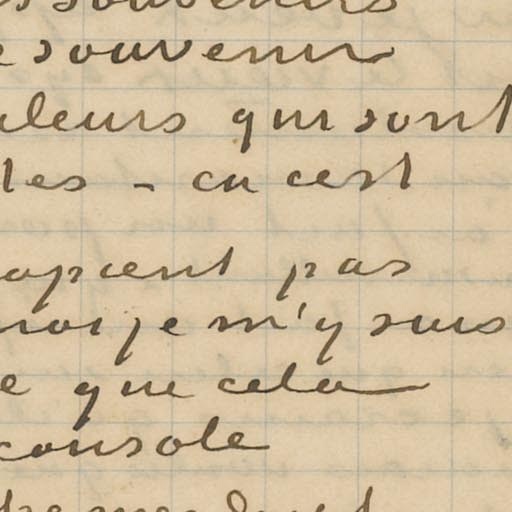 souvenirs
e souvenir
uleurs qui sont
tes - car c'est
pas
moi je m'y suis
e que cela
console